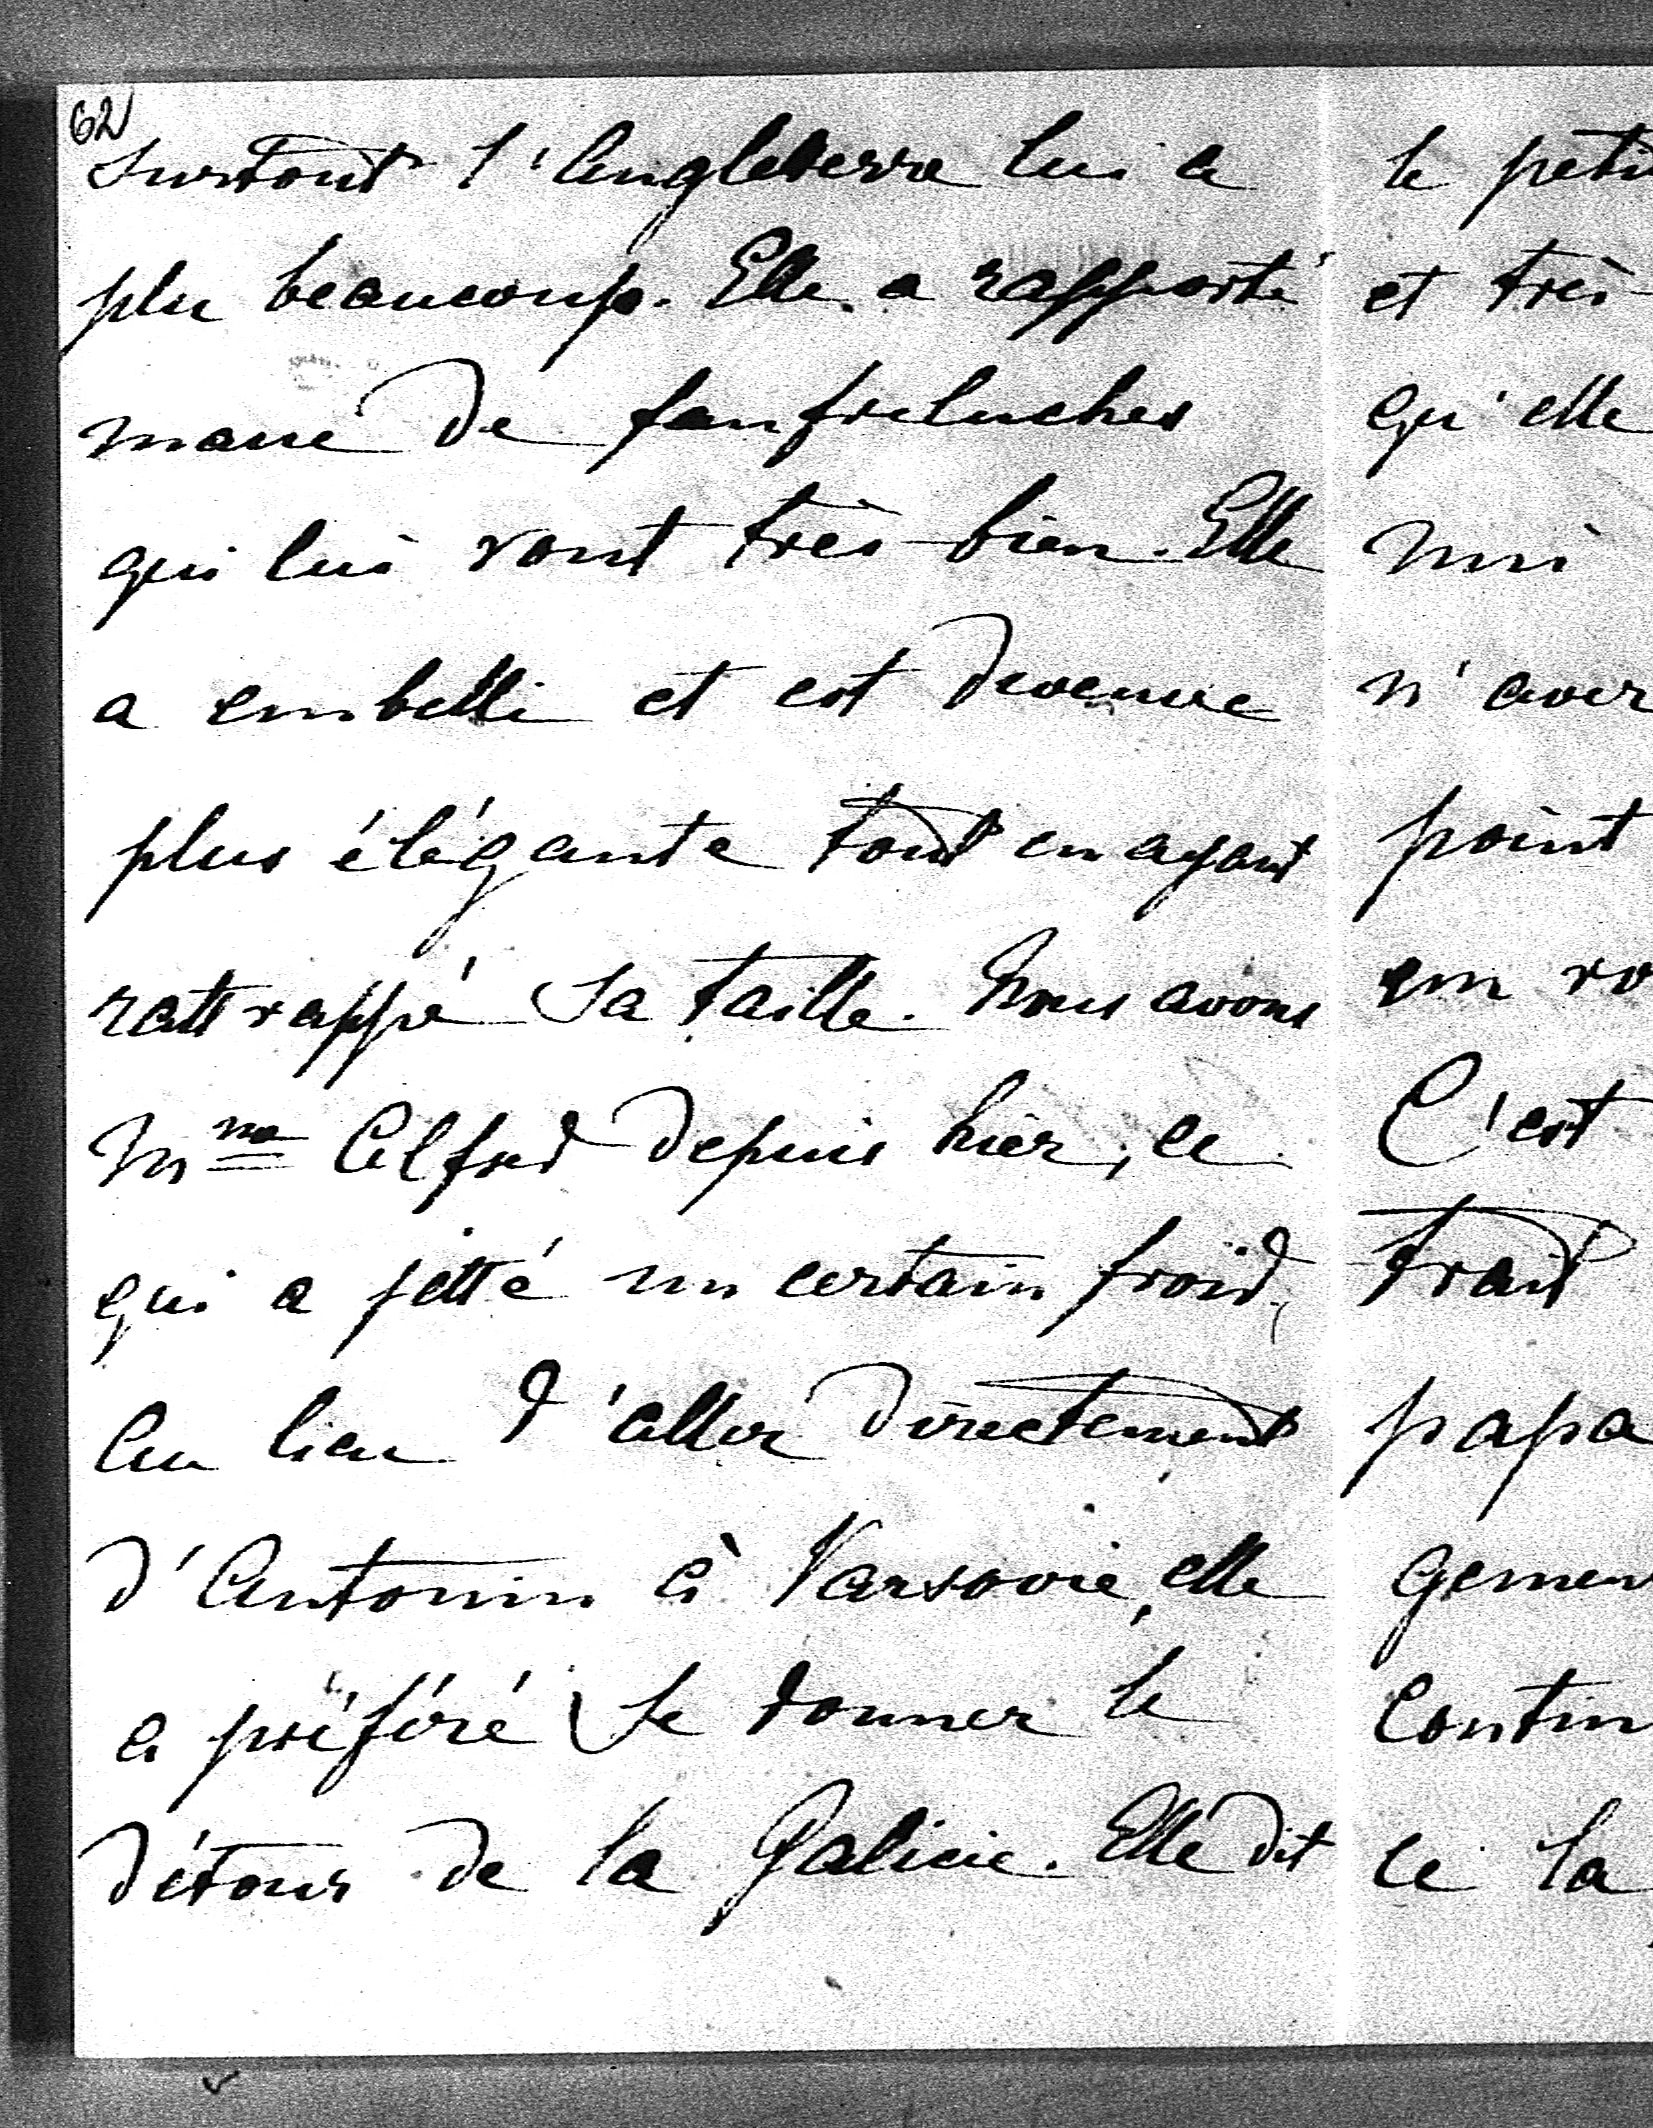 62
surtout l'Angleterre lui a
plu beaucoup. Elle a rapporté
masse de fanfreluches
qui lui vont très-bien. Elle
a embelli et est devenue
plus élégante tout en ayant
rattrappé sa taille. Nous avons
Mme Alfred depuis hier, ce
qui a jetté un certain froid,
Au lieu d'aller directement
d'Antonin à Varsovie, elle
a préféré se donner le
détour de la Galicie. Elle dit
le peti
et très-
qu'elle
n'avez
point
en vo
C'est
trait
papa
gemen
contin
ce la